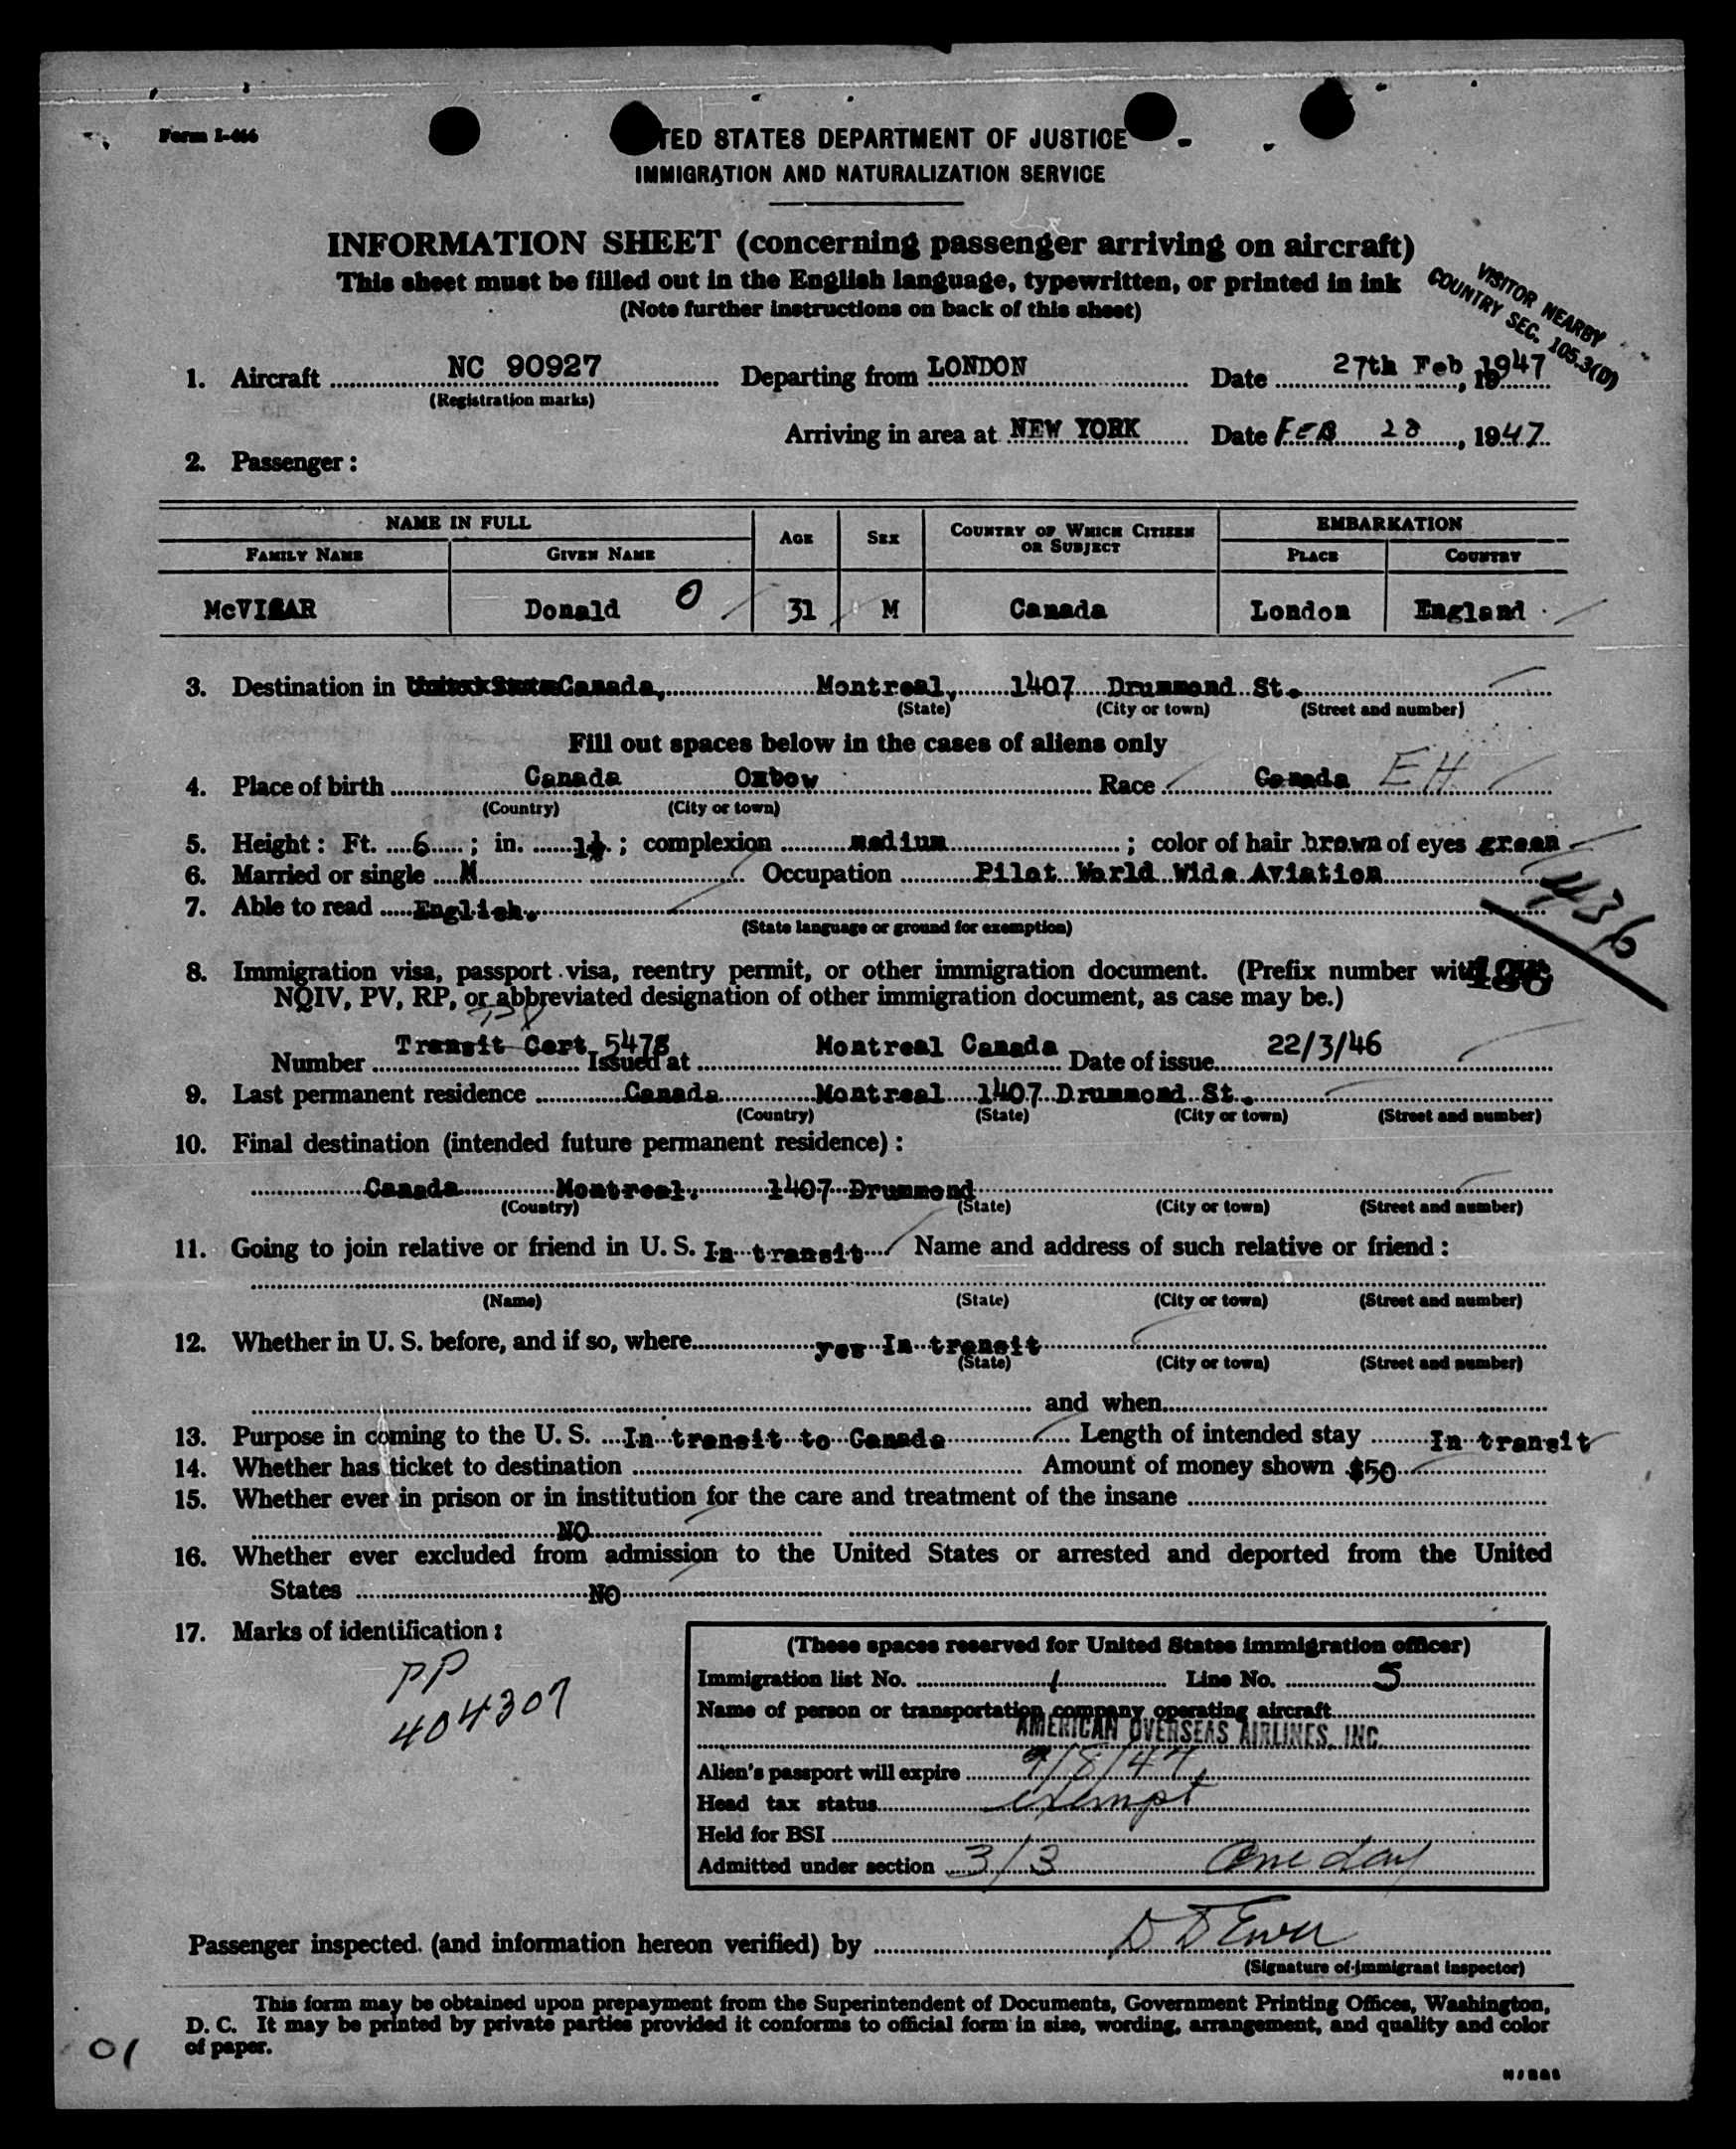 Form I-466
TED STATES DEPARTMENT OF JUSTICE
IMMIGRATION AND NATURALIZATION SERVICE
INFORMATION SHEET (concerning passenger arriving on aircraft)
This sheet must be filled out in the English language, typewritten, or printed in ink
(Note further instructions on back of this sheet)
VISITOR NEARBY
COUNTRY SEC. 105.3(D)
1. Aircraft NC 90927 Departing from LONDON Date 27th Feb 1947, 19
(Registration marks)
Arriving in area at NEW YORK Date FEB 28, 1947
2. Passenger:
NAME IN FULL AGE SEX COUNTRY OF WHICH CITIZEN OR SUBJECT EMBARKATION
FAMILY NAME GIVEN NAME PLACE COUNTRY
Donald O 31 M Canada London England
3. Destination in Canada, Montreal, 1407 Drummond St.
(State) (City or town) (Street and number)
Fill out spaces below in the cases of aliens only
4. Place of birth Canada Oxbow Race Canada EH
(Country) (City or town)
5. Height: Ft. 6; in. ; complexion medium; color of hair brown of eyes green
6. Married or single M Occupation Pilot World Wide Aviation
7. Able to read English.
(State language or ground for exemption)
436
8. Immigration visa, passport visa, reentry permit, or other immigration document. (Prefix number with
NQIV, PV, RP, or abbreviated designation of other immigration document, as case may be.)
Number Transit Cert 5478 Issued at Montreal Canada Date of issue 22/3/46
9. Last permanent residence Canada Montreal 1407 Drummond St.
(Country) (State) (City or town) (Street and number)
10. Final destination (intended future permanent residence):
Canada Montreal. 1407 Drummond
(Country) (State) (City or town) (Street and number)
11. Going to join relative or friend in U. S. In transit Name and address of such relative or friend:
(Name) (State) (City or town) (Street and number)
12. Whether in U. S. before, and if so, where yes In transit
(State) (City or town) (Street and number)
and when
13. Purpose in coming to the U. S. In transit to Canada Length of intended stay In transit
14. Whether has ticket to destination Amount of money shown $50
15. Whether ever in prison or in institution for the care and treatment of the insane
NO
16. Whether ever excluded from admission to the United States or arrested and deported from the United
States NO
17. Marks of identification:
PP
404307
(These spaces reserved for United States immigration officer)
Immigration list No. 1 Line No. 5
Name of person or transportation company operating aircraft
AMERICAN OVERSEAS AIRLINES, INC
Alien's passport will expire 9/8/47
Head tax status exempt
Held for BSI
Admitted under section 3/3 One day
Passenger inspected (and information hereon verified) by
(Signature of immigrant inspector)
This form may be obtained upon prepayment from the Superintendent of Documents, Government Printing Offices, Washington,
D. C. It may be printed by private parties provided it conforms to official form in size, wording, arrangement, and quality and color
of paper.
01